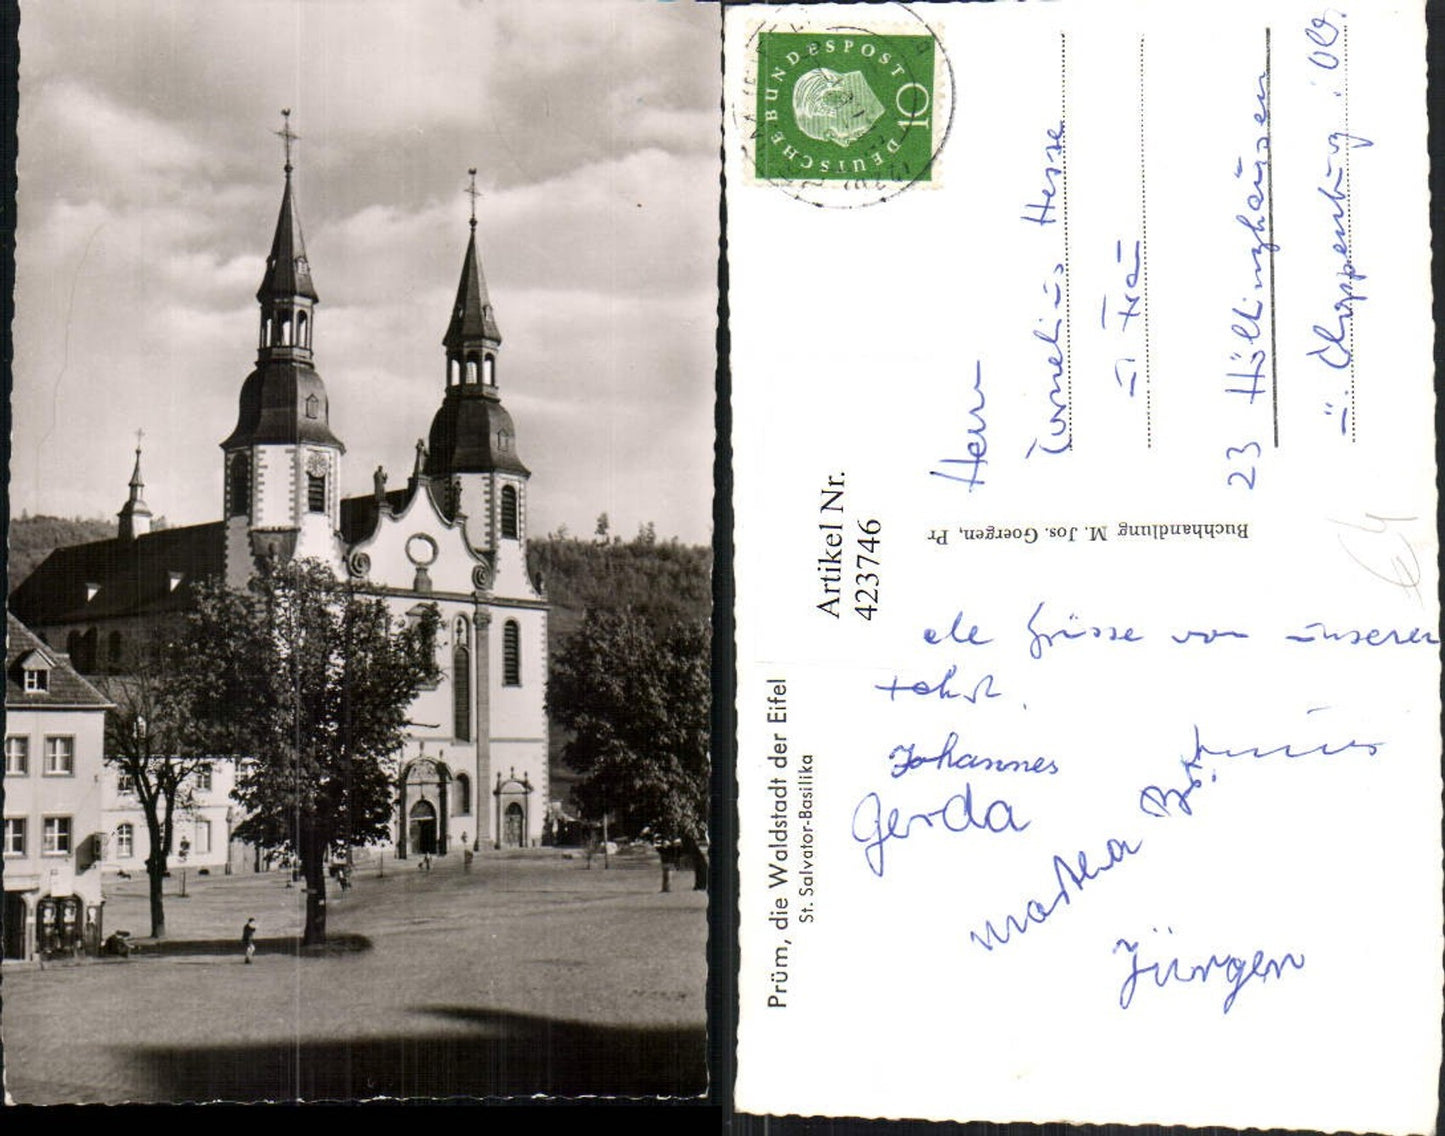 DEUTSCHE BUNDESPOST
10
Herrn
Cornelius Hesse
u. Frau
23 Höltinghausen
ü. Cloppenburg i. Old.
Artikel Nr.
423746
Buchhandlung M. Jos. Goergen, Pr
Prüm, die Waldstadt der Eifel
St. Salvator-Basilika
ele Grüsse von unserer
Johannes
Gerda
Jürgen